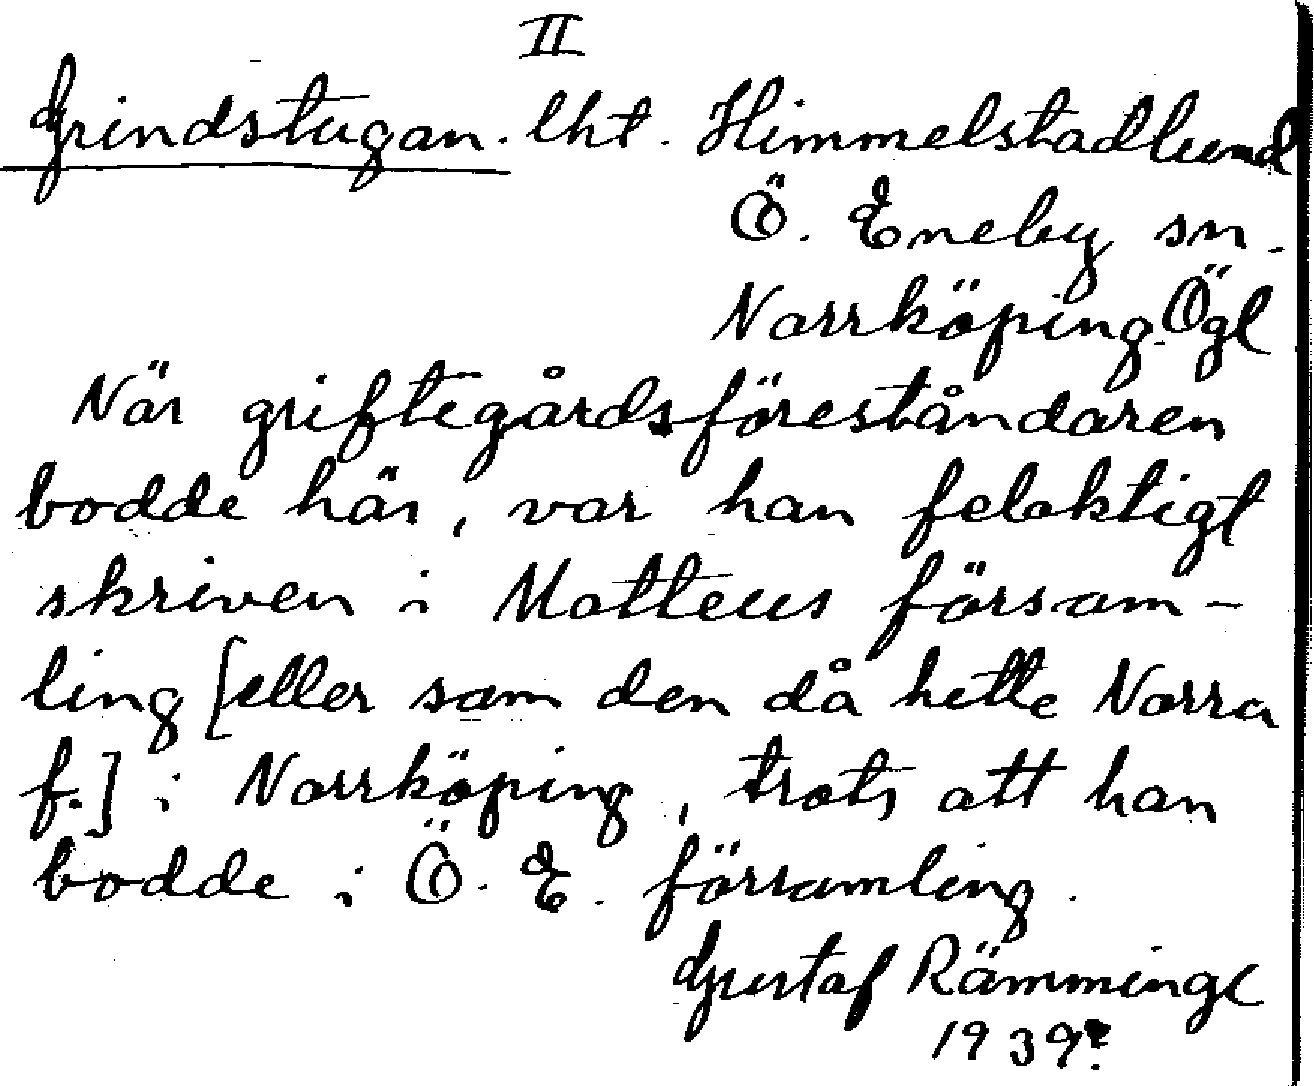 II
Grindstugan. lht. Himmelstadlund
Ö. Eneby sn.
Norrköping. Ögl
När griftegårdsföreståndaren
bodde här, var han felaktigt
skriven i Matteus försam-
ling [eller som den då hette Norra
f.] i Norrköping, trots att han
bodde i Ö. E. församling.
Gustaf Rämminge
1939?